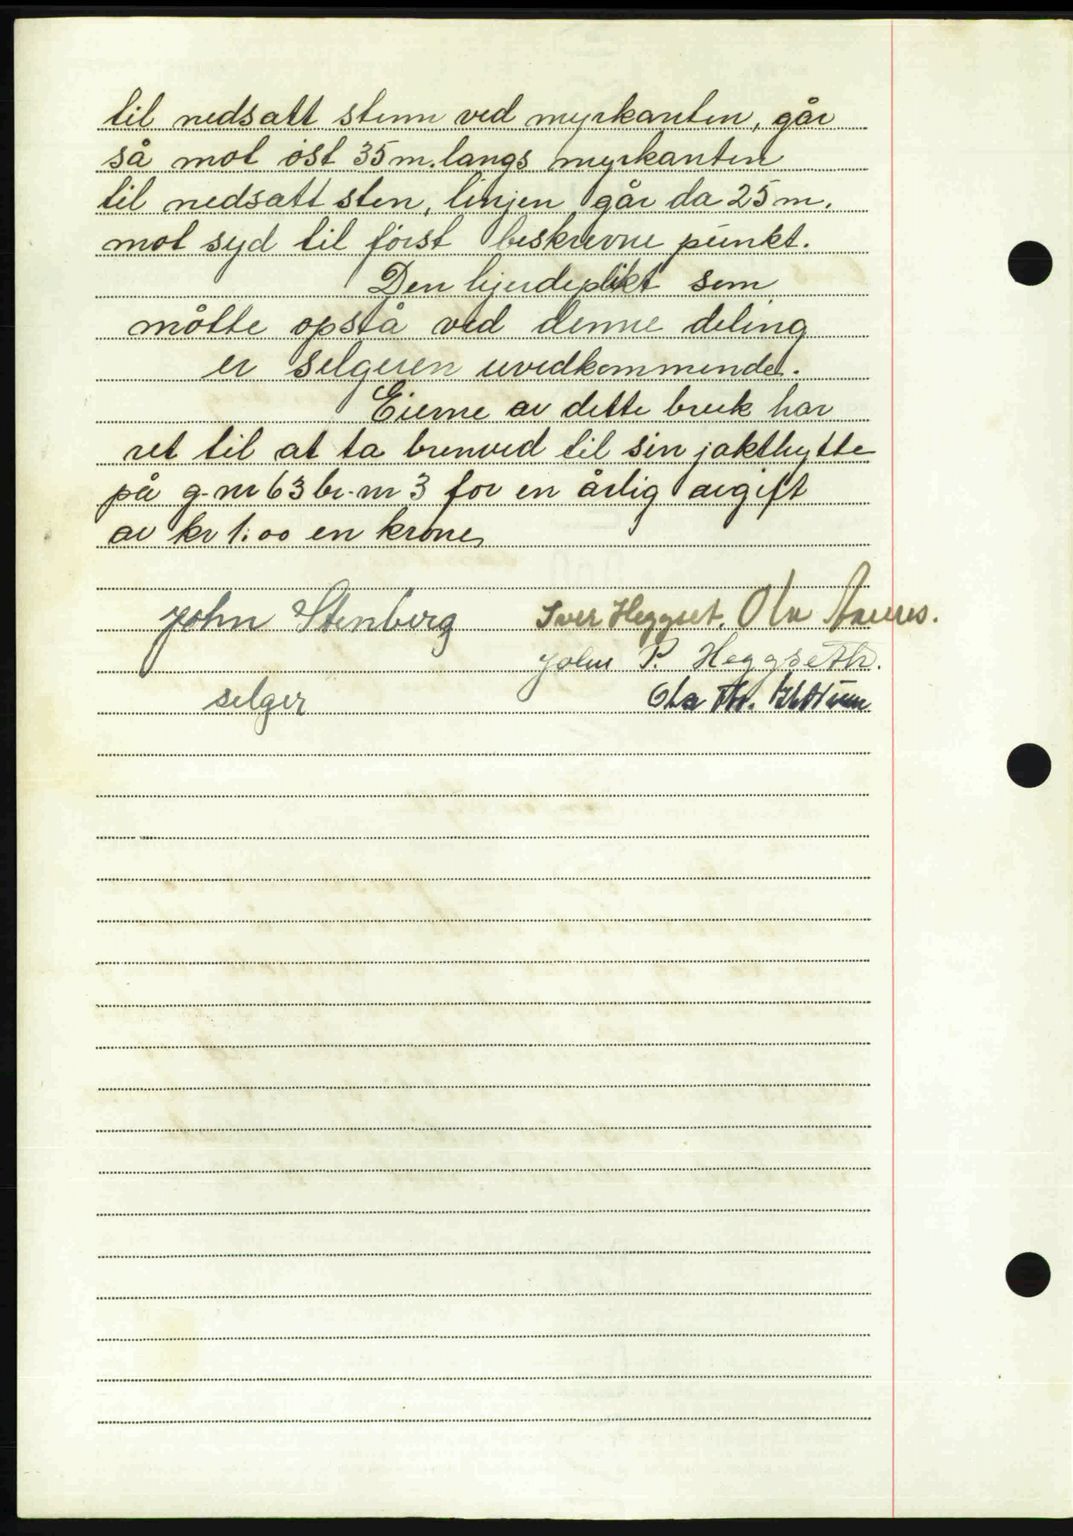 til nedsatt stenn ved myrkanten, går
så mot øst 35 m. langs myrkanten
til nedsatt sten, linjen går da 25 m.
mot syd til först beskrevne punkt.
Den gjerdeplikt som
måtte opstå ved denne deling
er selgeren uvedkommende.
Eierne av dette bruk har
ret til at ta brenved til sin jakthytte
på g-nr 63 br-nr 3 for en årlig avgift
av kr 1.00 en krone
John Stenberg Iver Heggset. Ola
John P. Heggseth.
selger Ola Th.